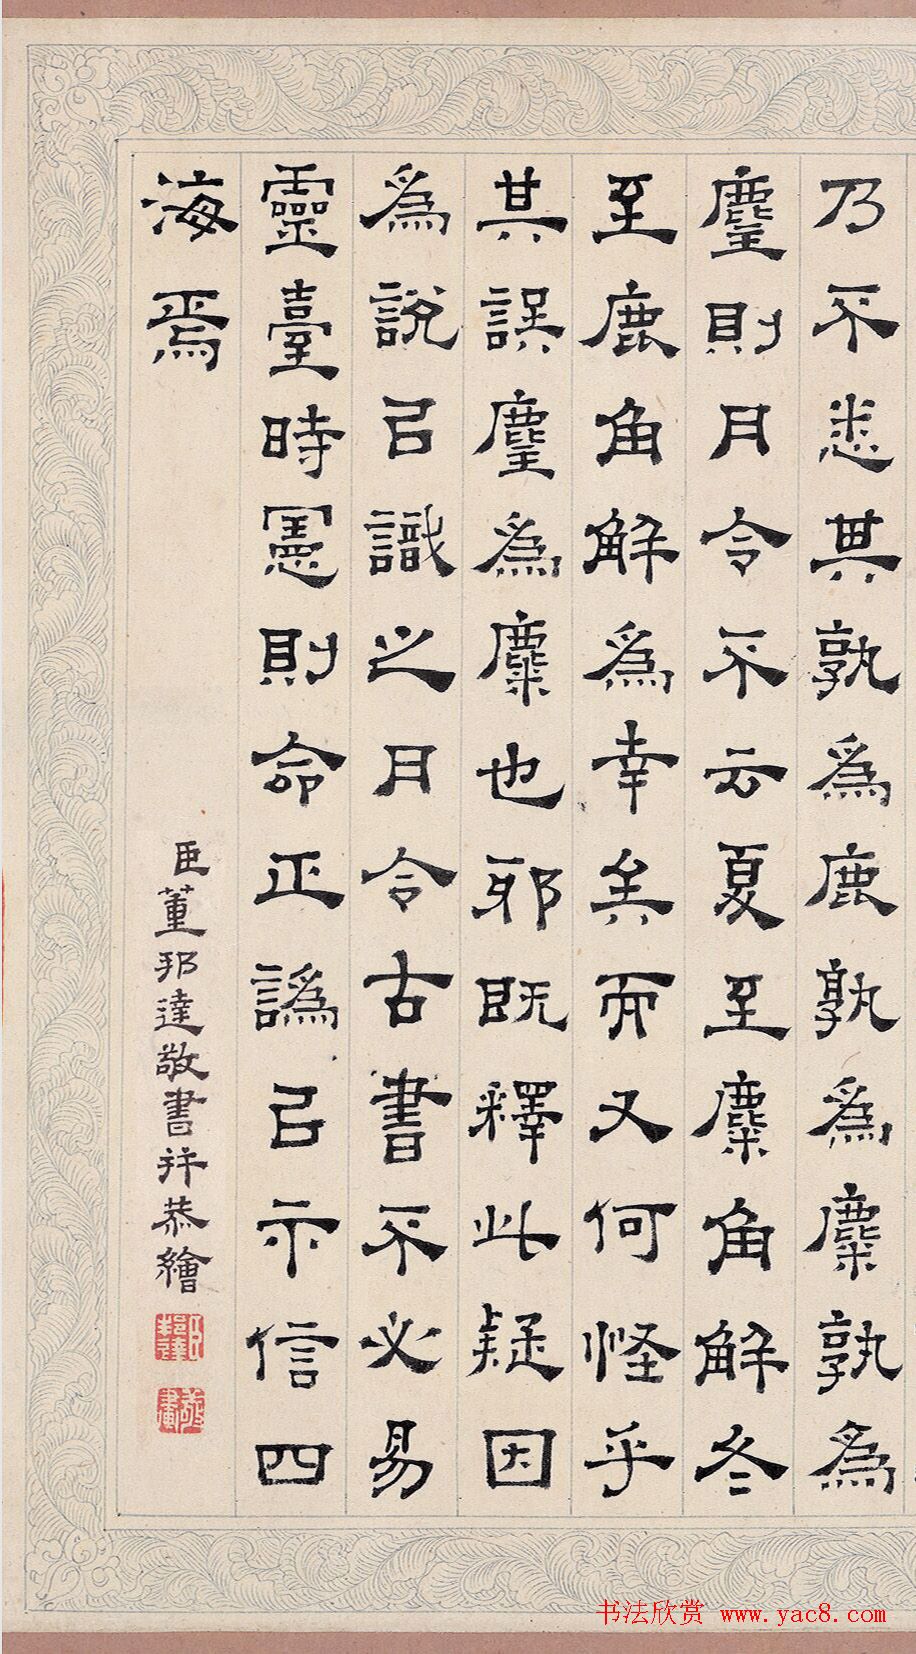 乃不悉其孰為鹿孰為麋孰為
麈則月令不云夏至麋角解冬
至鹿角解為幸矣而又何怪乎
其誤麈為麋也邪既釋此疑因
為說㠯識之月令古書不必易
靈臺時憲則命正譌㠯示信四
海焉
臣董邦達敬書并恭繪
臣邦達
敬畫
书法欣赏 www.yac8.com